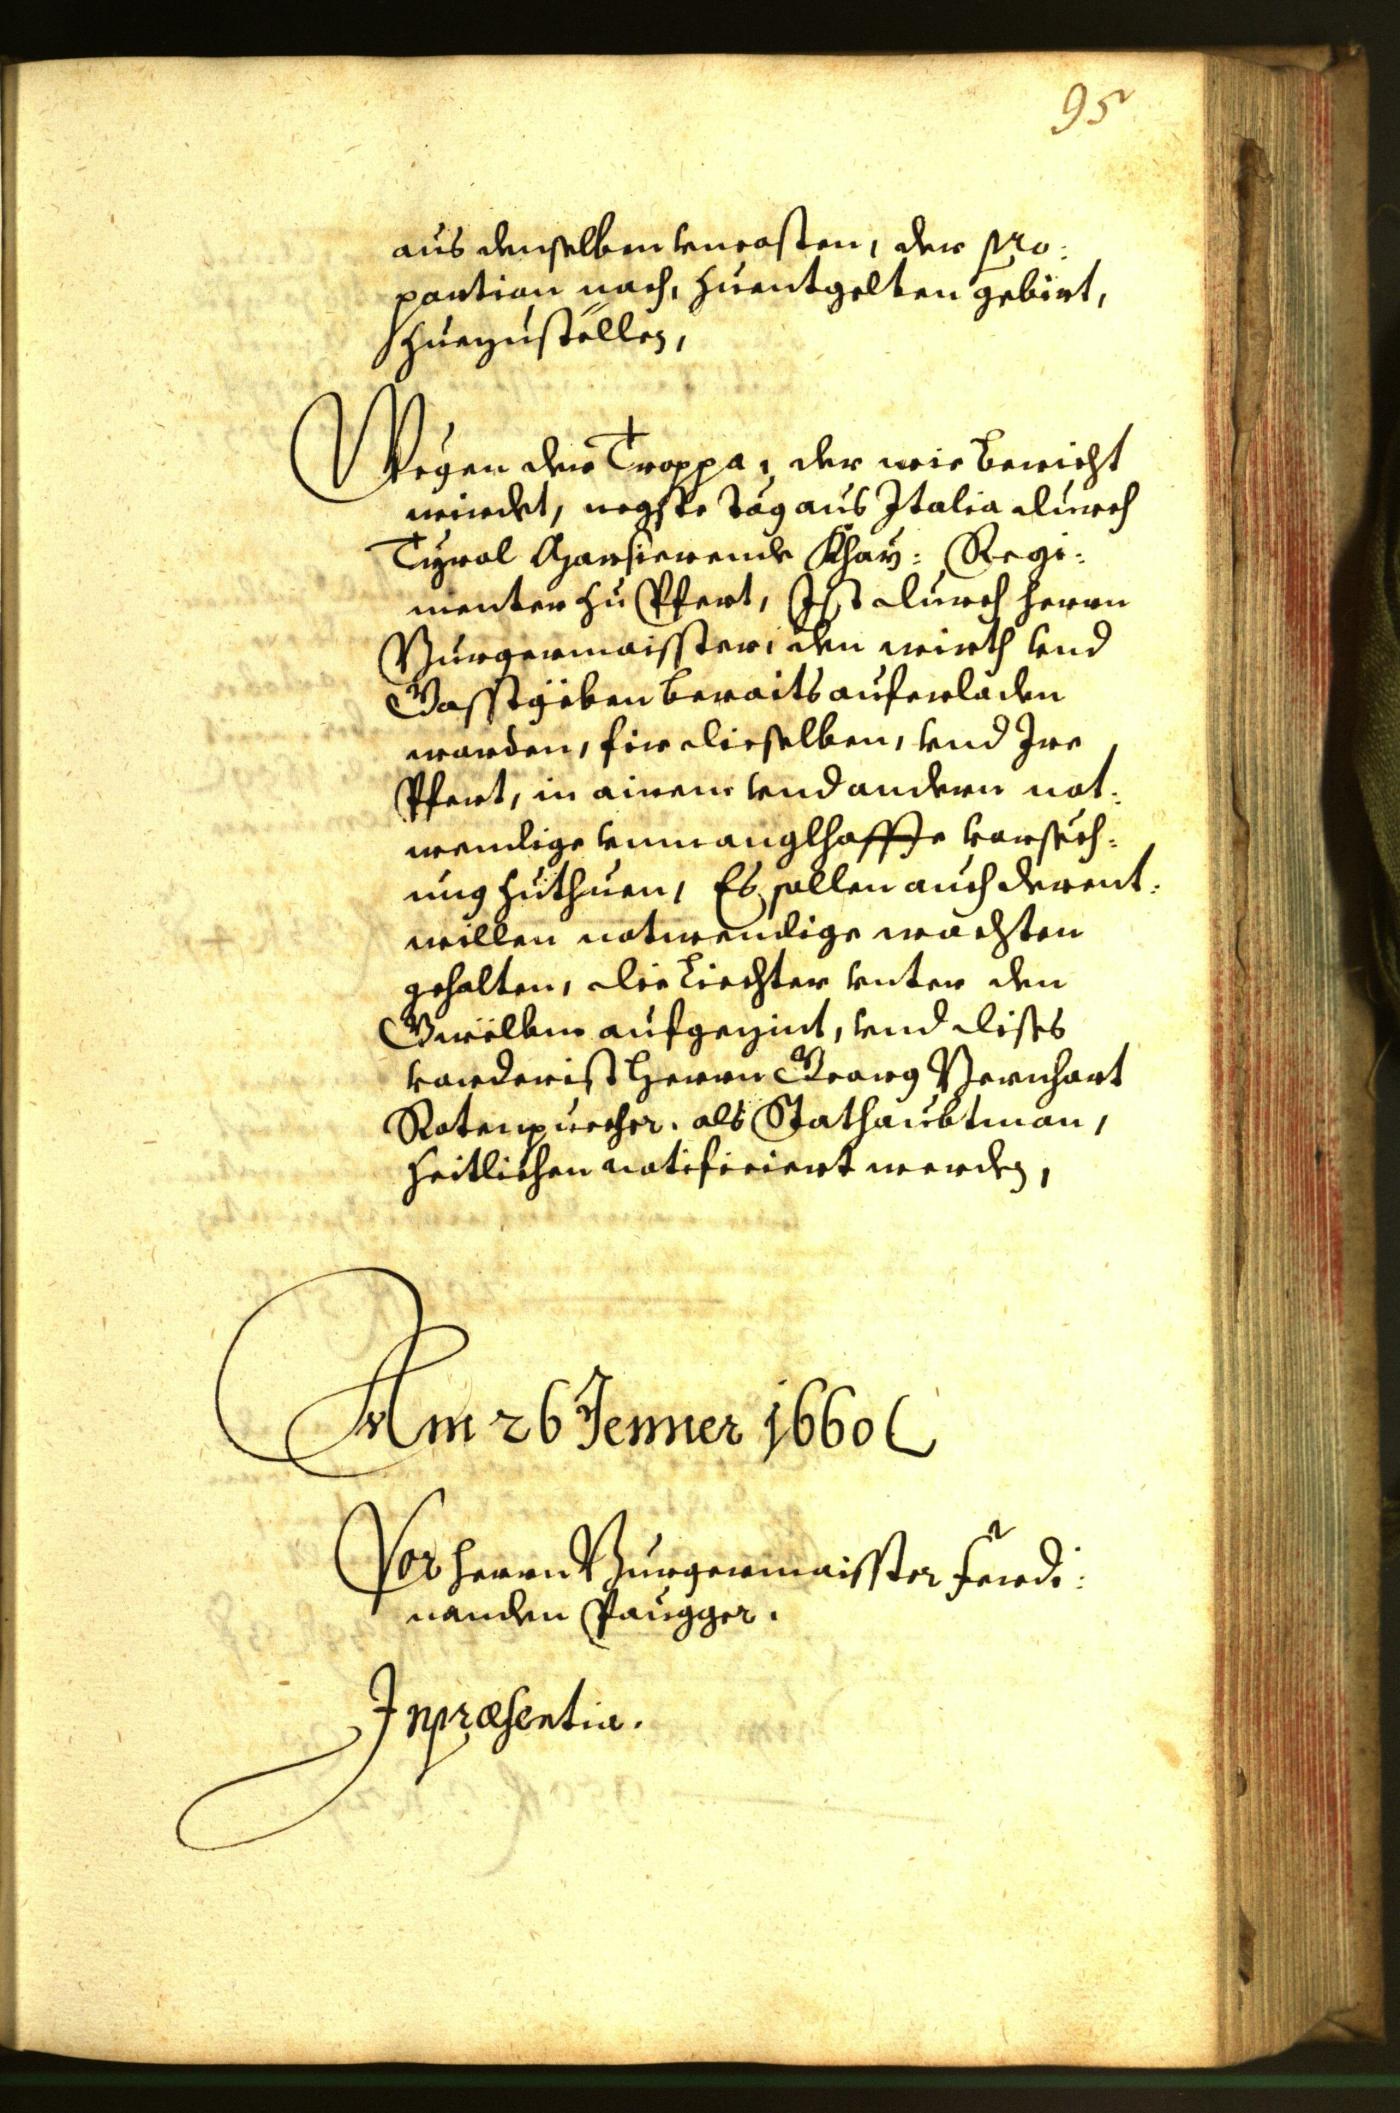 95
aus denselben uncosten, der pro:
portion nach, zuentgelten gebirt,
zuezustöllen,
Wegen der Troppa, der wie bericht
wirdet, negste tag aus Italia durch
Tyrol Marsierende Khay: Regi:
menter zu Pfert, Ist durch herrn
Burgermaisster, den wirth vnd
Gasstgëben beraits auferladen
worden, fir dieselben, vnd Ire
Pfert, in ainem vnd andern not:
wendige vnmanglhaffte vorsech:
ung zuthuen, Es sollen auch derent:
willen notwendige wachten
gehalten, die Liechter vnter den
Gwëlbm aufgezint, vnd dises
vorderist Herrn Georg Bernhart
Rotenpuecher. als Stathaubtman,
zeitlichen notificiert werden,
Am 26 Jenner 1660
Vor herrn Burgermaisster Ferdi:
nanden Paugger.
In præsentia.